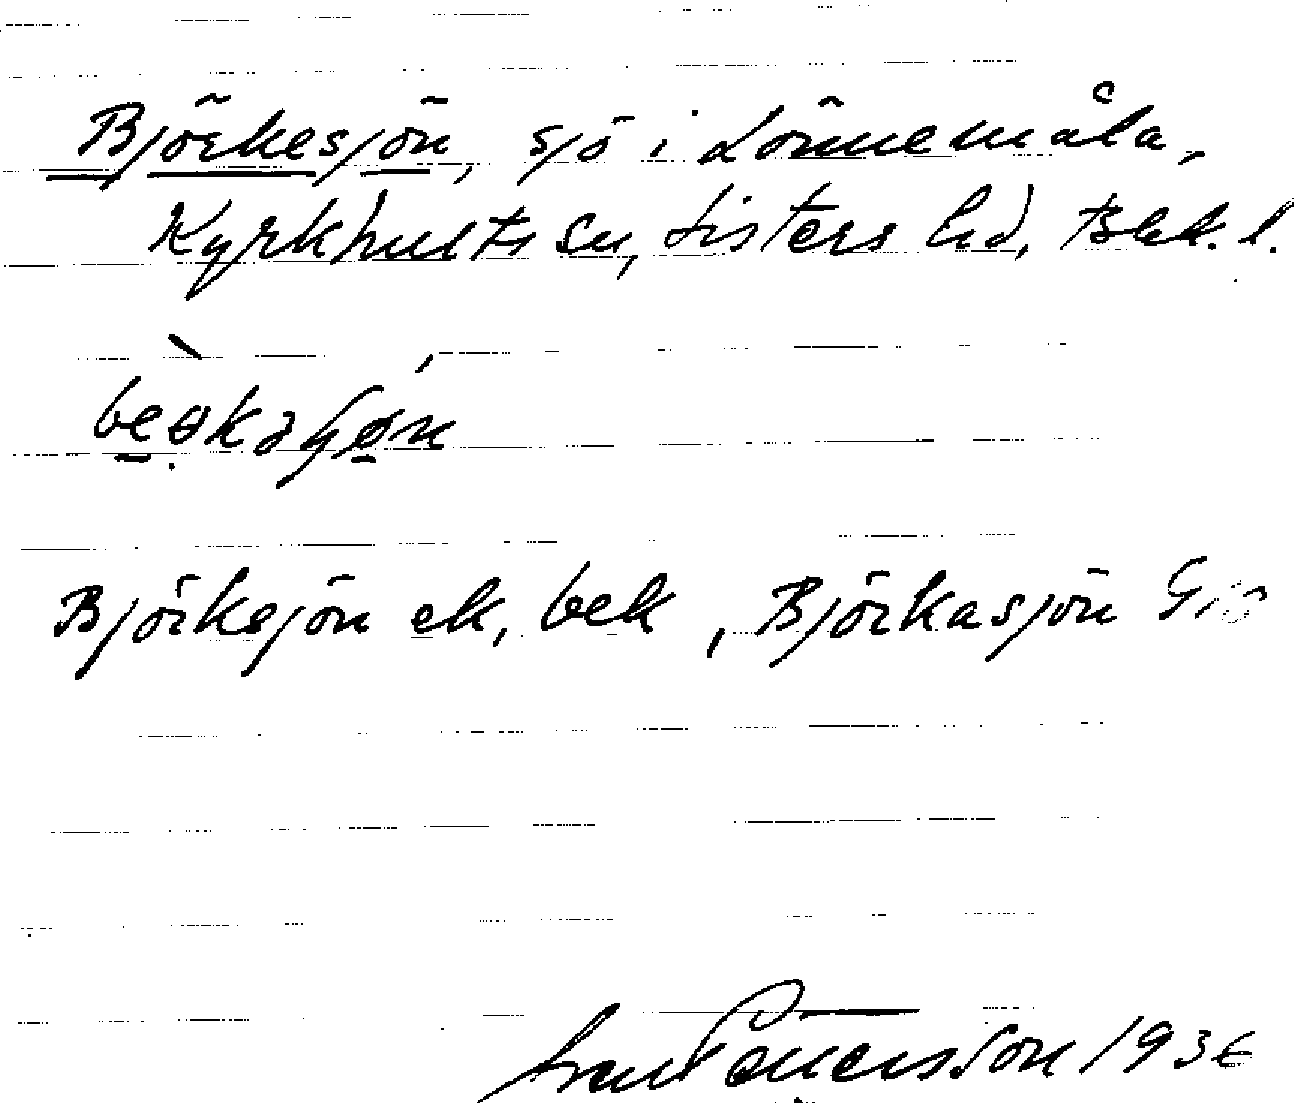 Björkesjön, sjö i Lönnemåla,
Kyrkhults sn, Listers hd, Blek. l.
Björkesjön ek, bek, Björkasjön
1936